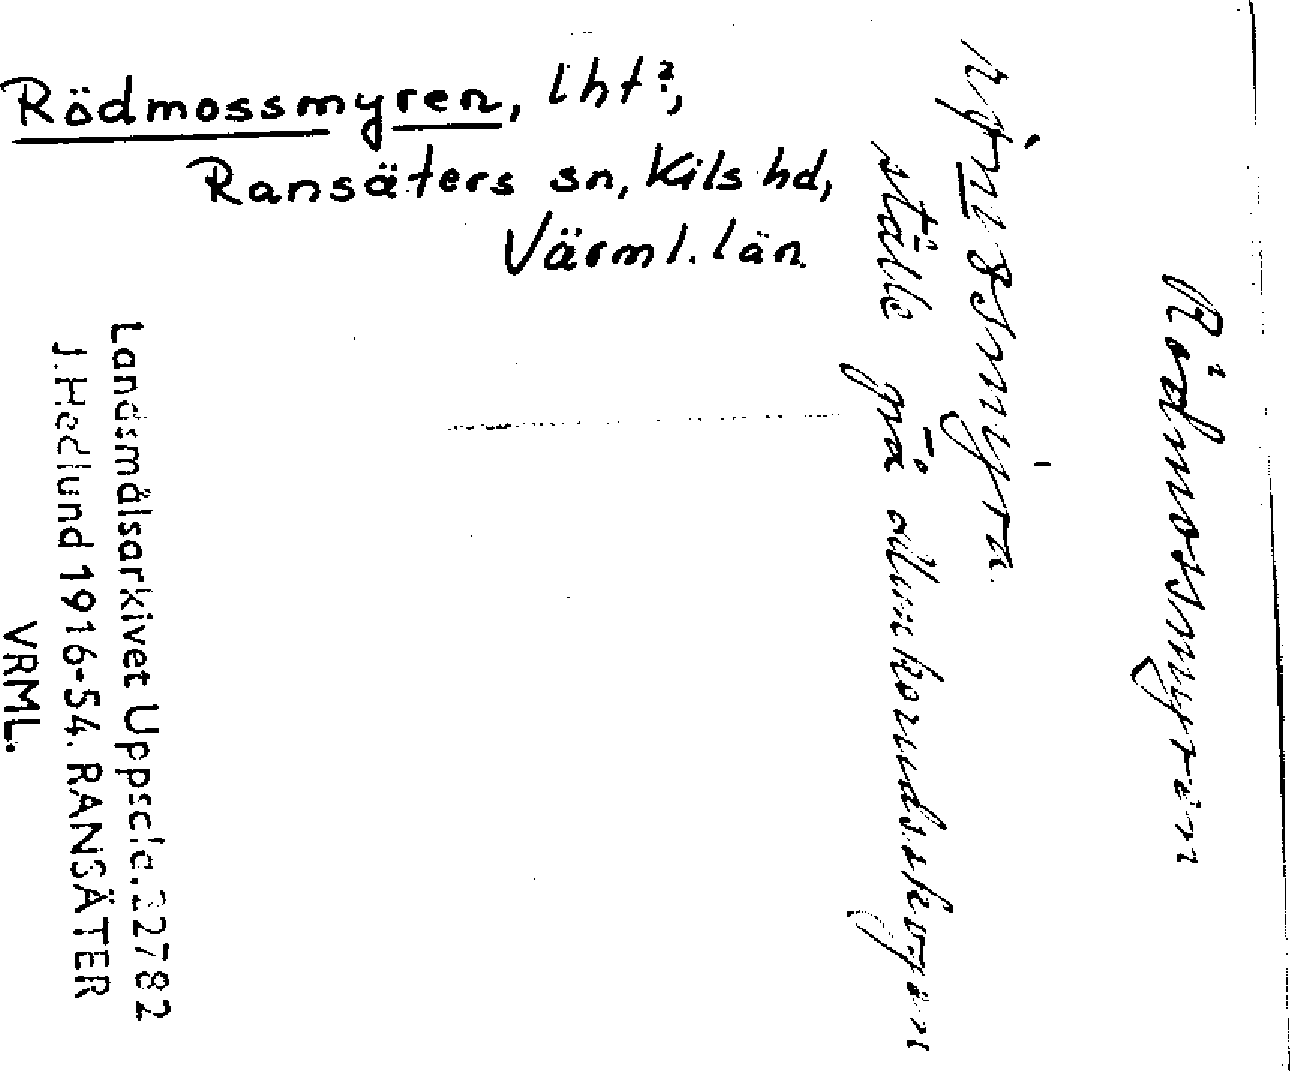 Rödmossmyren, lht?,
Ransäters sn, Kils hd,
Värml. län
Rödmossmyren
ställe på
Landsmålsarkivet Uppsala. 22782
J. Hedlund 1916-54. RANSÄTER
VRML.